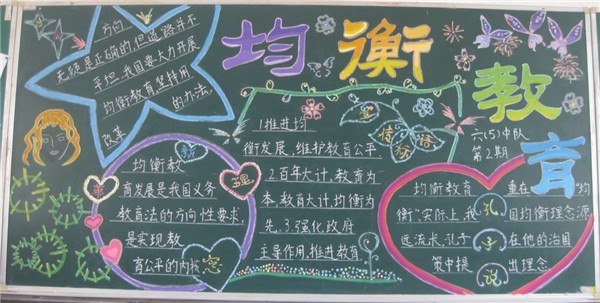 均衡教育
六(5)中队
第2期
方向
无疑是正确的,但道路并不
平坦。我国要大力开展
均衡教育坚持用
改革
的办法。
均衡教
育发展是我国义务
教育法的方向性要求,
是实现教
育公平的内核
宣传标语
1.推进均
衡发展,维护教育公平
2.百年大计,教育为
本,教育大计均衡为
先。3.强化政府
主导作用,推进教育
均衡教育
重在"均
衡"实际上,我
国均衡理念源
远流长,孔子
在他的治国
策中提
出理念。
孔
子